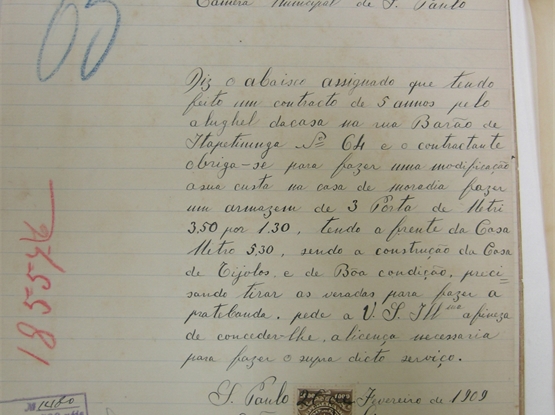 65
Camera Municipal de S. Paulo
Diz o abaisco assignado que tendo
feito um contracto de 5 annos pelo
alughel dacasa na rua Barão de
Itapetininga Nº 64 e o contractante
obriga-se para fazer uma modificação
asua custa na casa de moradia fazer
um armazem de 3 Porta de Metri
3,50 por 1.30, tendo a frente da Casa
Metro 5,30, sendo a construção da Casa
de Tijolos, e de Boa condição, preci=
sando tirar as veradas para fazer a
pratebanda. pede a V. S. Illma afineza
de concedervlhe, a licença necessaria
para fazer o supra dicto serviço.
S. Paulo Fevereiro de 1909
18555-76
1480